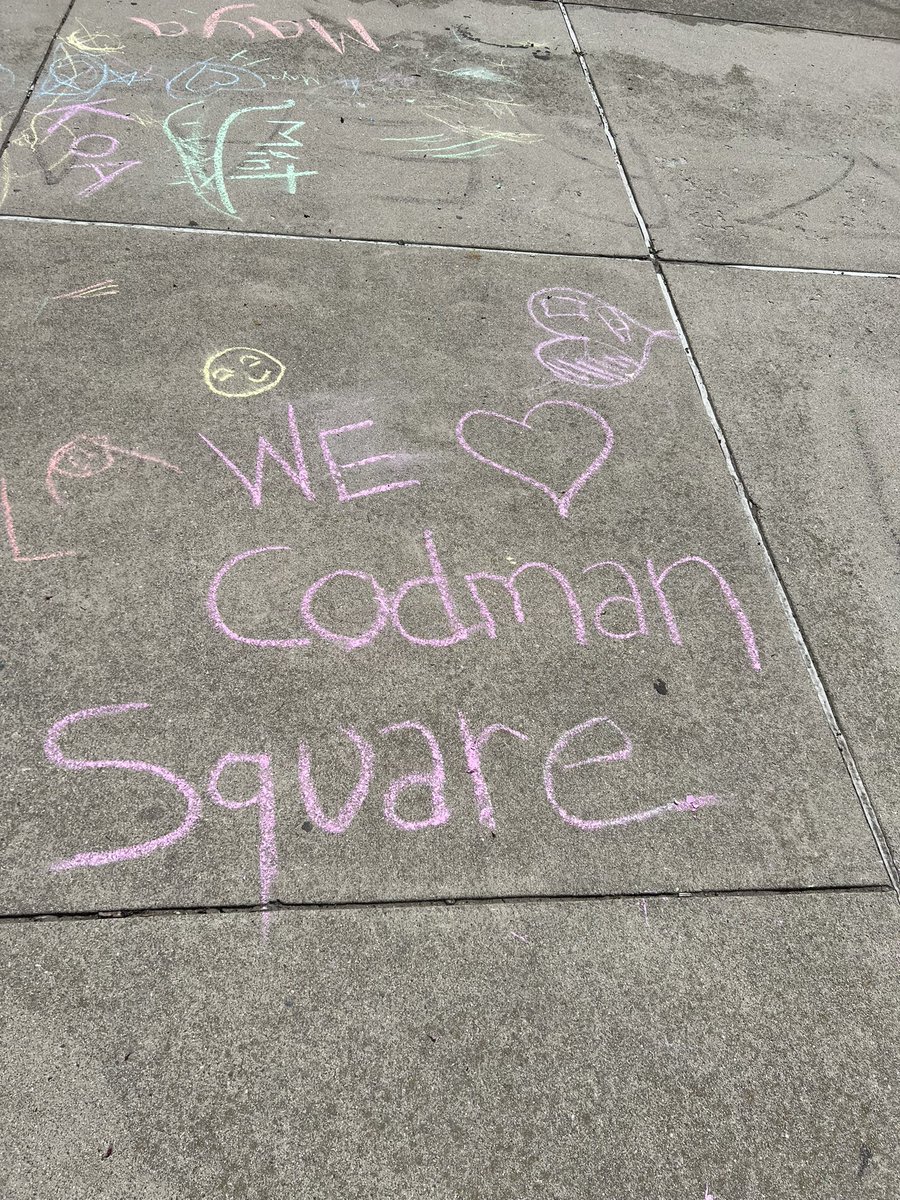 Maya
KOA
Mint
WE ♥
Codman
Square